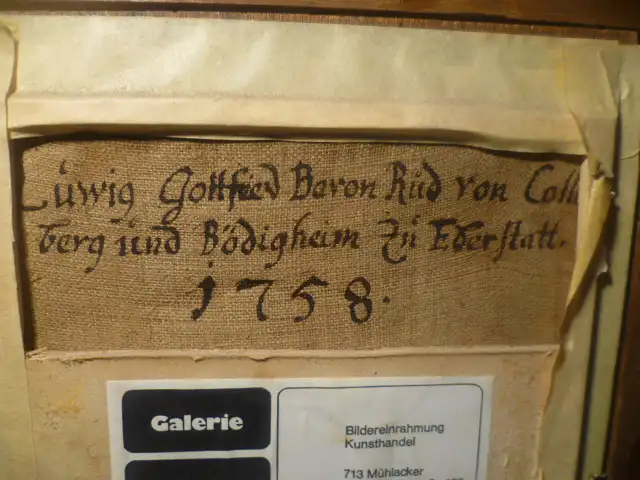 Lüwig Gottfried Baron Rüd von Coll
berg und Bödigheim Zü Eberstatt.
1758.
Galerie
Bildereinrahmung
Kunsthandel
713 Mühlacker